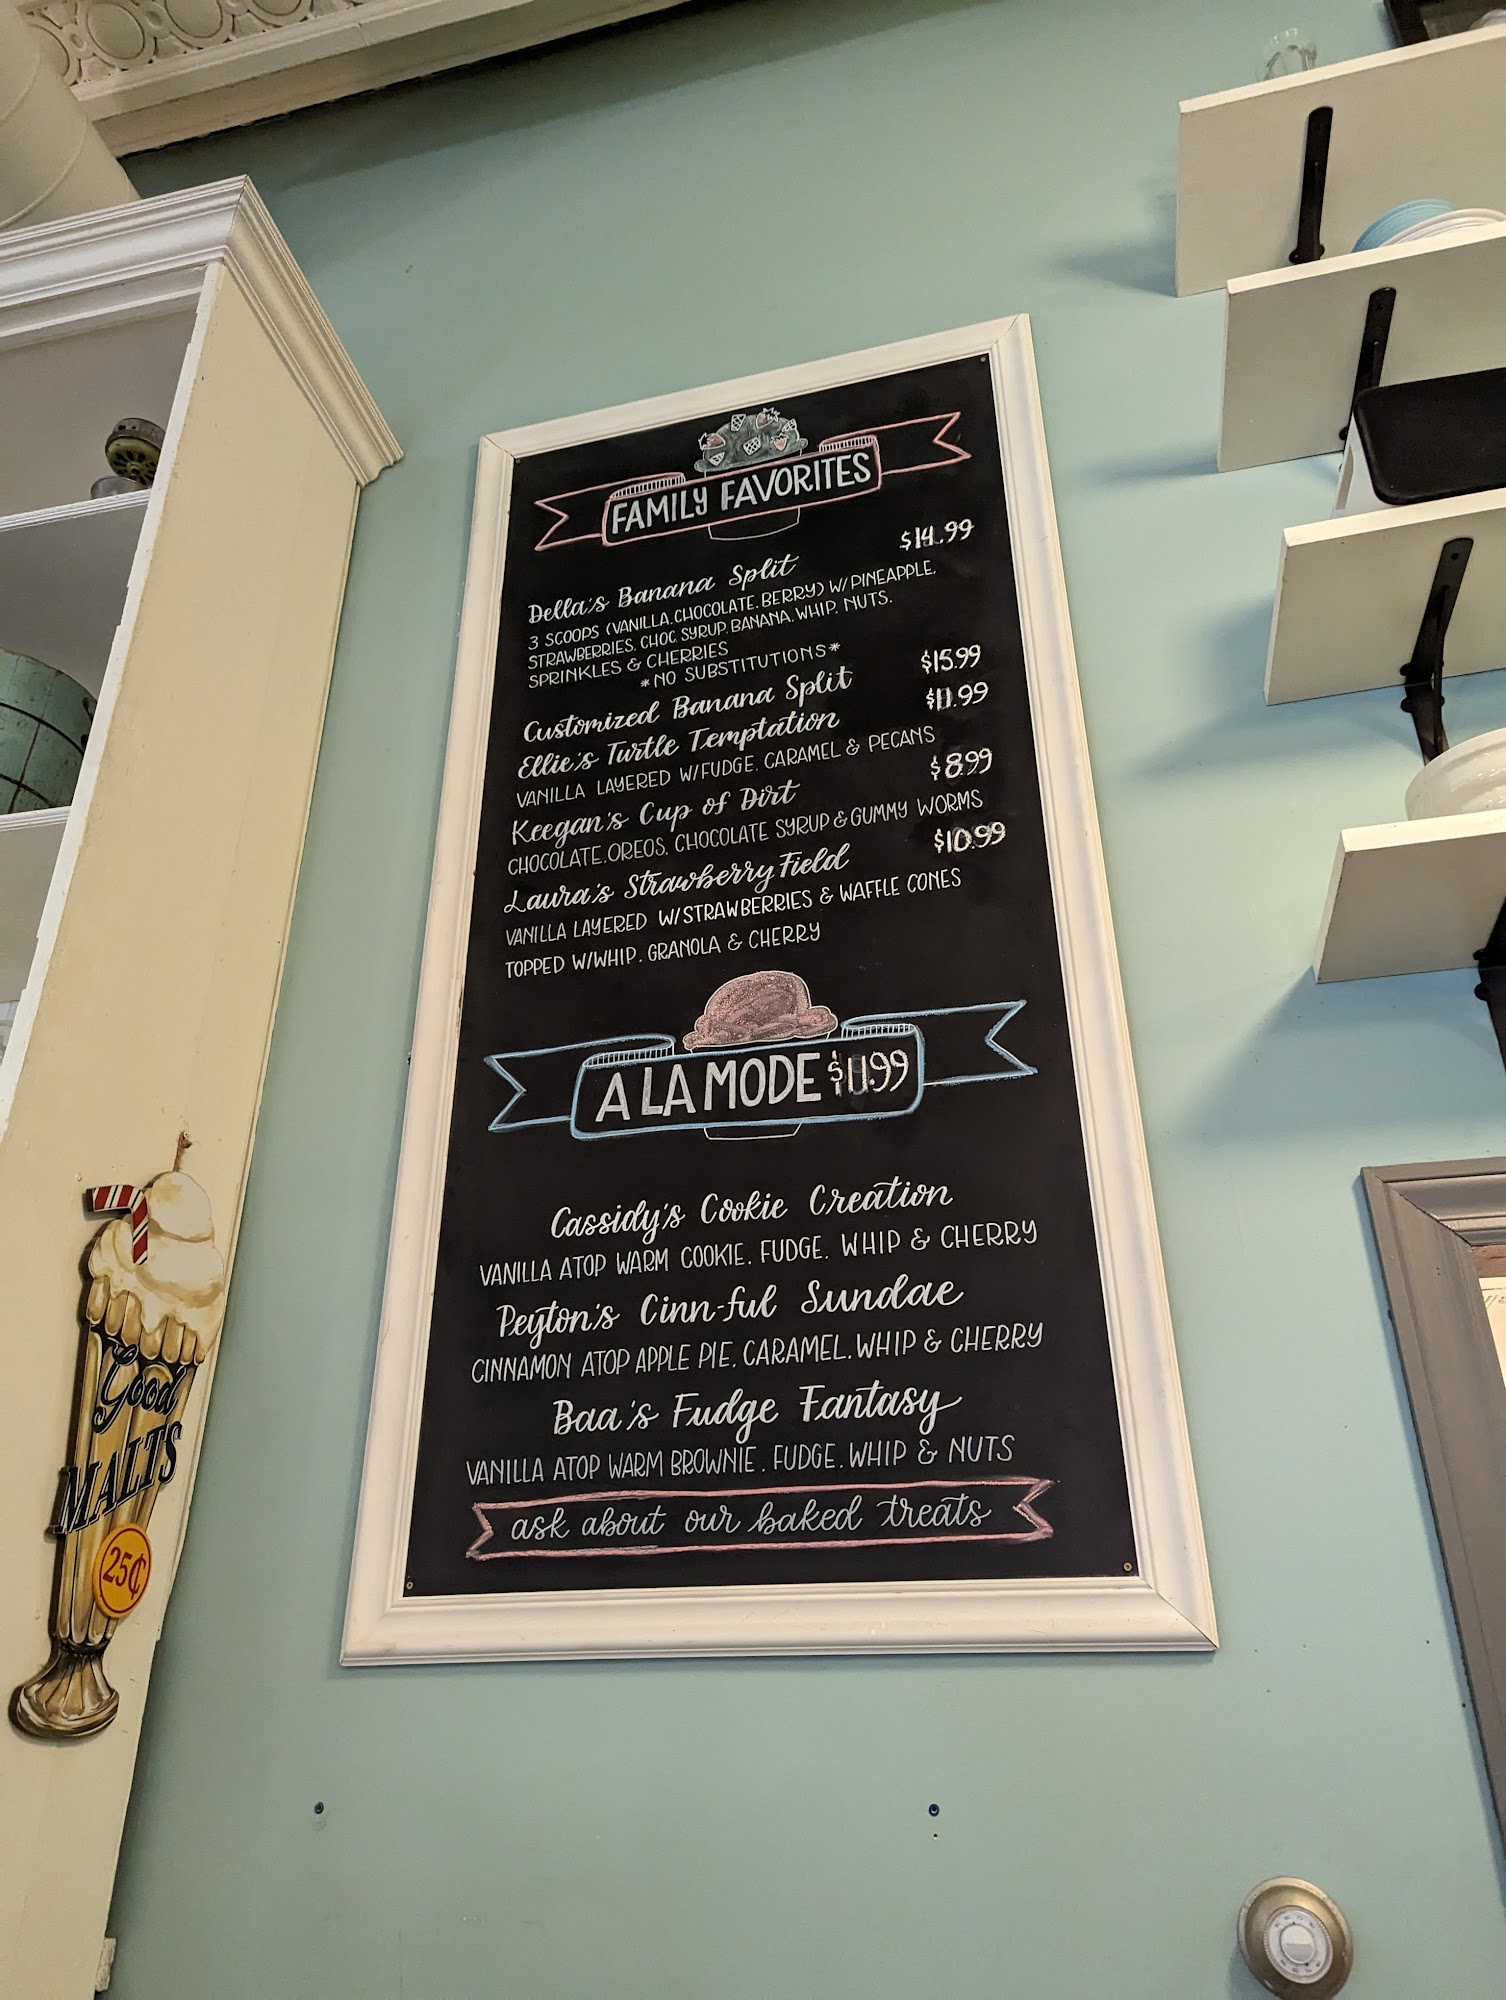 FAMILY FAVORITES
Della's Banana Split $14.99
3 SCOOPS (VANILLA, CHOCOLATE, BERRY) W/ PINEAPPLE,
STRAWBERRIES, CHOC. SYRUP, BANANA, WHIP, NUTS,
SPRINKLES & CHERRIES
*NO SUBSTITUTIONS*
Customized Banana Split $15.99
Ellie's Turtle Temptation $11.99
VANILLA LAYERED W/FUDGE, CARAMEL & PECANS
Keegan's Cup of Dirt $8.99
CHOCOLATE, OREOS, CHOCOLATE SYRUP & GUMMY WORMS
Laura's Strawberry Field $10.99
VANILLA LAYERED W/STRAWBERRIES & WAFFLE CONES
TOPPED W/WHIP, GRANOLA & CHERRY
A LA MODE $11.99
Cassidy's Cookie Creation
VANILLA ATOP WARM COOKIE, FUDGE, WHIP & CHERRY
Peyton's Cinn-ful Sundae
CINNAMON ATOP APPLE PIE, CARAMEL, WHIP & CHERRY
Baa's Fudge Fantasy
VANILLA ATOP WARM BROWNIE, FUDGE, WHIP & NUTS
ask about our baked treats
Good
MALTS
25¢